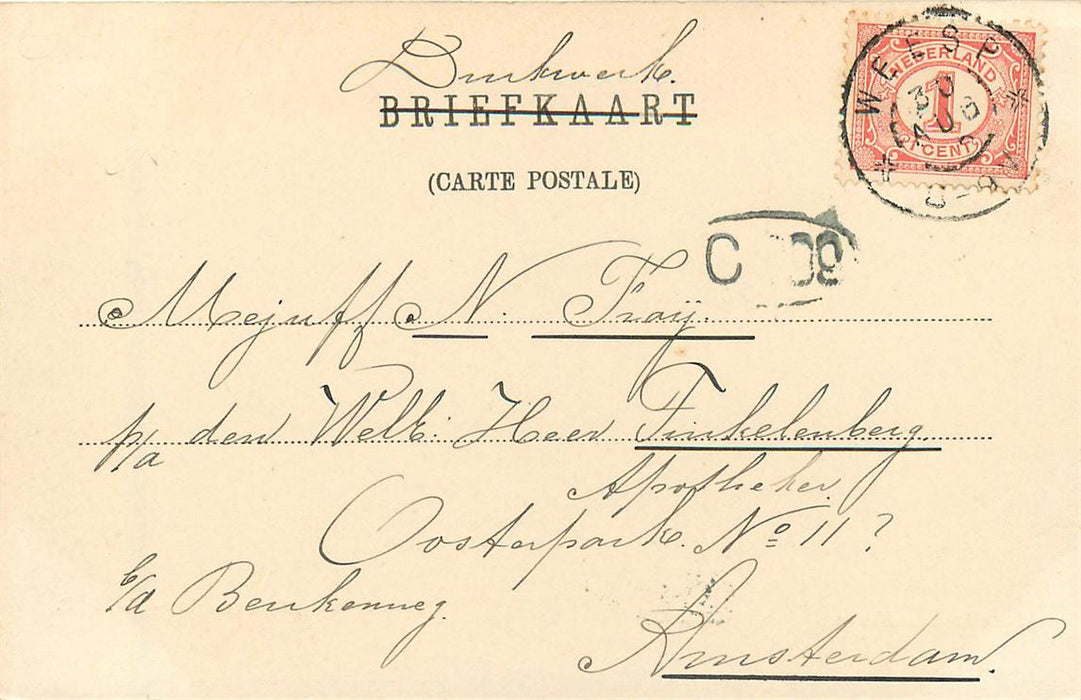 Drukwerk.
BRIEFKAART
(CARTE POSTALE)
WEESP
NEDERLAND
1
CENT
C
Mejuff N. Traij.
p/a den Welb. Heer Finkelenberg.
Apotheker.
Oosterpark. No 11?
b/d Beukenweg.
Amsterdam.